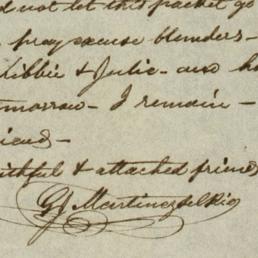 not let this packet go
pray excuse blunders-
Libbie & Julie- and
morrow- I remain-
& attached friend
Martinez del Rio